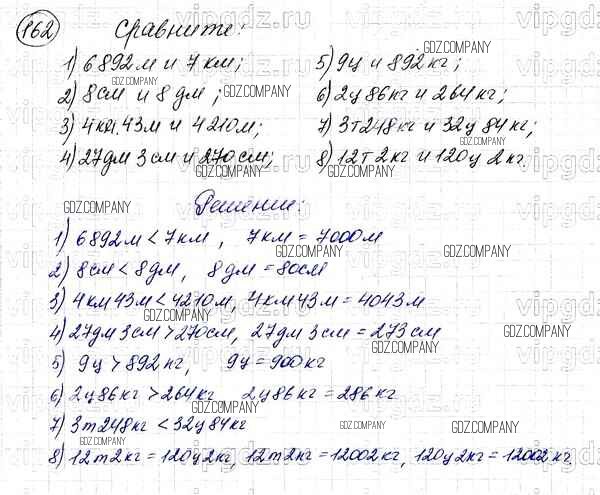 162 Сравните:
1) 6892м и 7км;
2) 8см и 8дм;
3) 4км 43м и 4210м;
4) 27дм 3см и 270см;
5) 9ц и 892кг;
6) 2ц 86кг и 264кг;
7) 3т 248кг и 32ц 84кг;
8) 12т 2кг и 120ц 2кг.
Решение:
1) 6892м < 7км, 7км = 7000м
2) 8см < 8дм, 8дм = 80см
3) 4км 43м < 4210м, 4км 43м = 4043м
4) 27дм 3см > 270см, 27дм 3см = 273см
5) 9ц > 892кг, 9ц = 900кг
6) 2ц 86кг > 264кг 2ц 86кг = 286кг
7) 3т 248кг < 32ц 84кг
8) 12т 2кг = 120ц 2кг, 12т 2кг = 12002кг, 120ц 2кг = 12002кг
GDZ.COMPANY
vipgdz.ru